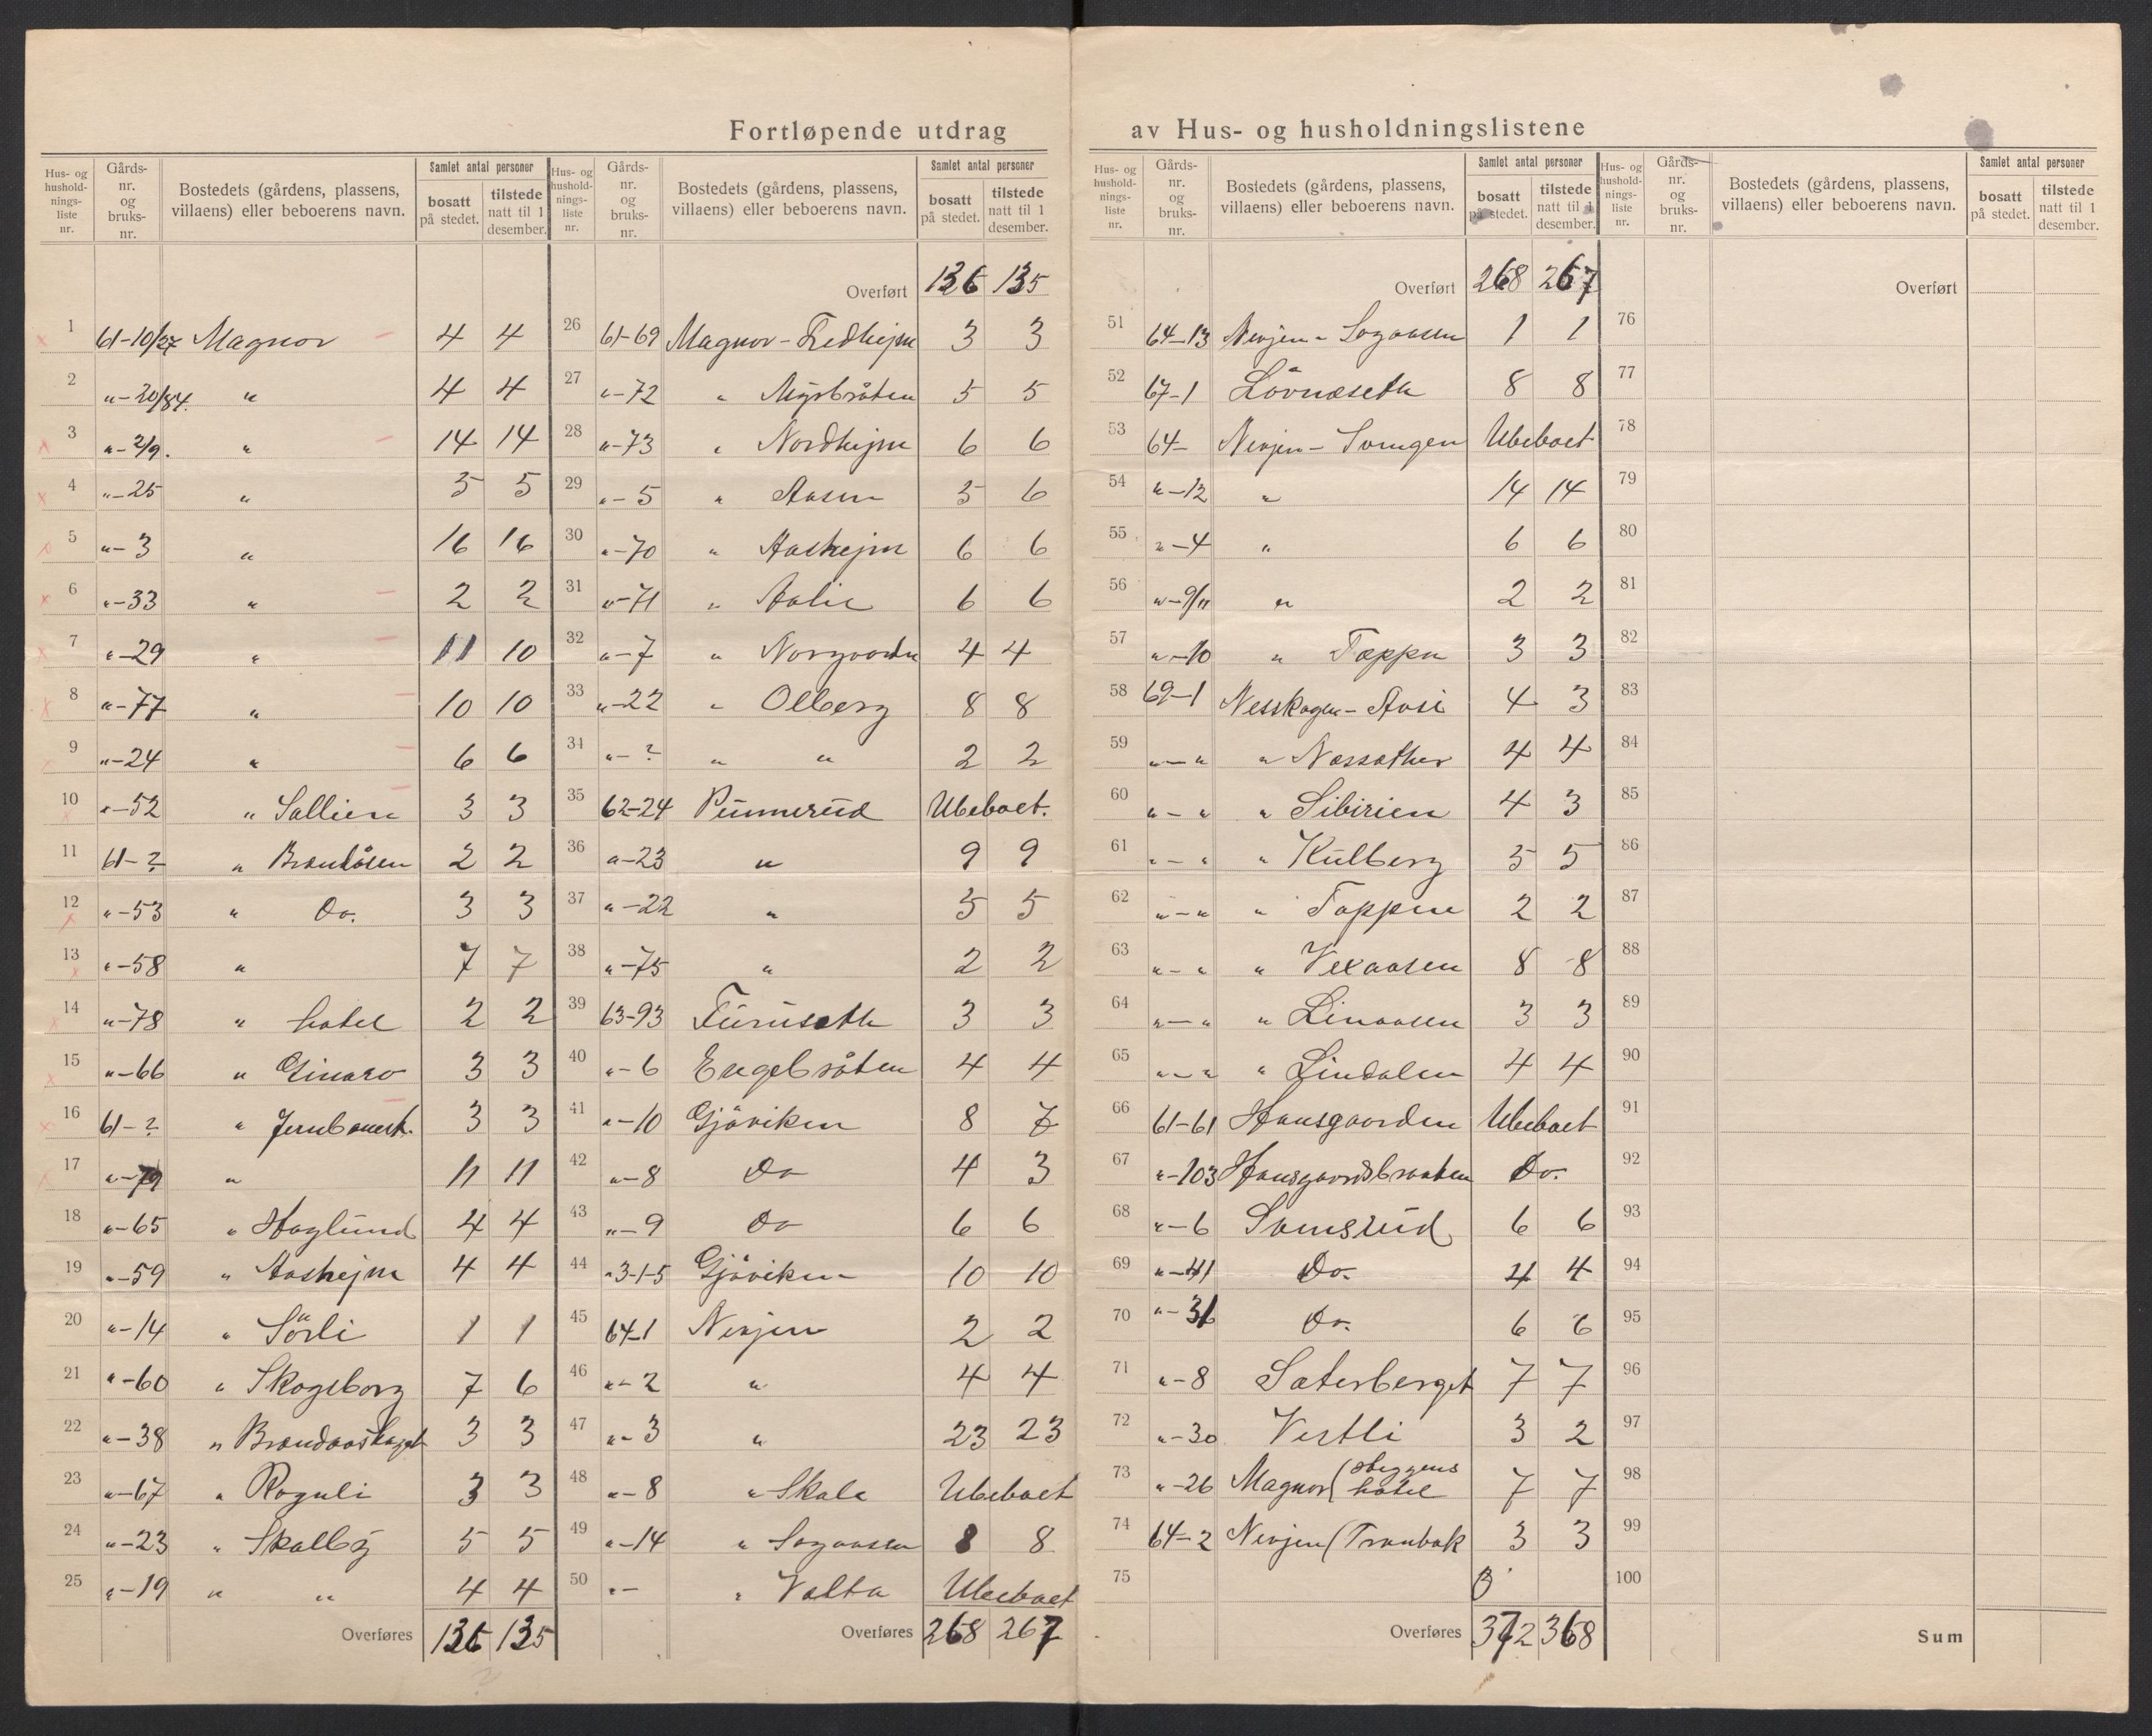 Fortløpende utdrag av Hus- og husholdningslistene
Hus- og hushold-nings-liste nr. Gårds-nr. og bruks-nr. Bostedets (gårdens, plassens, villaens) eller beboerens navn. Samlet antal personer bosatt på stedet. tilstede natt til 1 desember.
1 61-10/27 Magnor 4 4
2 "-20/84. " 4 4
3 "-2/9. " 14 14
4 "-25 " 5 5
5 "-3 " 16 16
6 "-33 " 2 2
7 "-29 " 11 10
8 "-77 " 10 10
9 "-24 " 6 6
10 "-52 " Sollien 3 3
11 61-? " Brandåsen 2 2
12 "-53 " Do. 3 3
13 "-58 " 7 7
14 "-78 " hotel 2 2
15 "-66 " 3 3
16 61-? " 3 3
17 "-79 " 11 11
18 "-65 " Haglund 4 4
19 "-59 " Aashejm 4 4
20 "-14 " Sörli 1 1
21 "-60 " Skogsborg 7 6
22 "-38 " 3 3
23 "-67 " Roguli 3 3
24 "-23 " Skalbÿ 5 5
25 "-19 " " 4 4
Overføres 136 135
Hus- og hushold-nings-liste nr. Gårds-nr. og bruks-nr. Bostedets (gårdens, plassens, villaens) eller beboerens navn. Samlet antal personer bosatt på stedet. tilstede natt til 1 desember.
Overført 136 135
26 61-69 Magnor-Fredhejm 3 3
27 "-72 " Myrbråten 5 5
28 "-73 " Nordhejm 6 6
29 "-5 " Aasen 5 6
30 "-70 " Aashejm 6 6
31 "-71 " Aalie 6 6
32 "-7 " Norgaarden 4 4
33 "-22 " Olberg 8 8
34 "-? " " 2 2
35 62-24 Punnerud Ubeboet.
36 "-23 " 9 9
37 "-22 " 5 5
38 "-75 " 2 2
39 63-93 Furuseth 3 3
40 "-6 Engelbråten 4 4
41 "-10 Gjöviken 8 7
42 "-8 Do 4 3
43 "-9 Do 6 6
44 "3-1-5 Gjöviken 10 10
45 64-1 Nevjen 2 2
46 "-2 " 4 4
47 "-3 " 23 23
48 "-8 " Skala Ubeboet
49 "-14 " Sagaasen 8 8
50 "- " Valta Ubeboet
Overføres 268 267
Hus- og hushold-nings-liste nr. Gårds-nr. og bruks-nr. Bostedets (gårdens, plassens, villaens) eller beboerens navn. Samlet antal personer bosatt på stedet. tilstede natt til 1 desember.
Overført 268 267
51 64-13 Nevjen - Sagaasen 1 1
52 67-1 Lövnæseth 8 8
53 64- Nevjen - Ubeboet
54 "-12 " 14 14
55 "-4 " 6 6
56 "-9/11 " 2 2
57 "-10 " Tappen 3 3
58 69-1 Nesskogen - Aasi 4 3
59 "-" " Næssæther 4 4
60 "-" " Sibirien 4 3
61 "-" " Kulberg 5 5
62 "-" " Toppen 2 2
63 "-" " Vexaasen 8 8
64 "-" " Linaasen 3 3
65 "-" " Lindalen 4 4
66 61-61 Hansgaarden Ubeboet
67 "-103 Hansgaardsbraaten Do.
68 "-6 Samsrud 6 6
69 "-41 Do. 4 4
70 "-36 Do. 6 6
71 "-8 Sæterberget 7 7
72 "-30 Vestli 3 2
73 "-26 Magnor ( hotel 7 7
74 64-2 Nevjen (Tranbak 3 3
75
Overføres 372 368
Hus- og hushold-nings-liste nr. Gårds-nr. og bruks-nr. Bostedets (gårdens, plassens, villaens) eller beboerens navn. Samlet antal personer bosatt på stedet. tilstede natt til 1 desember.
Overført
76
77
78
79
80
81
82
83
84
85
86
87
88
89
90
91
92
93
94
95
96
97
98
99
100
Sum